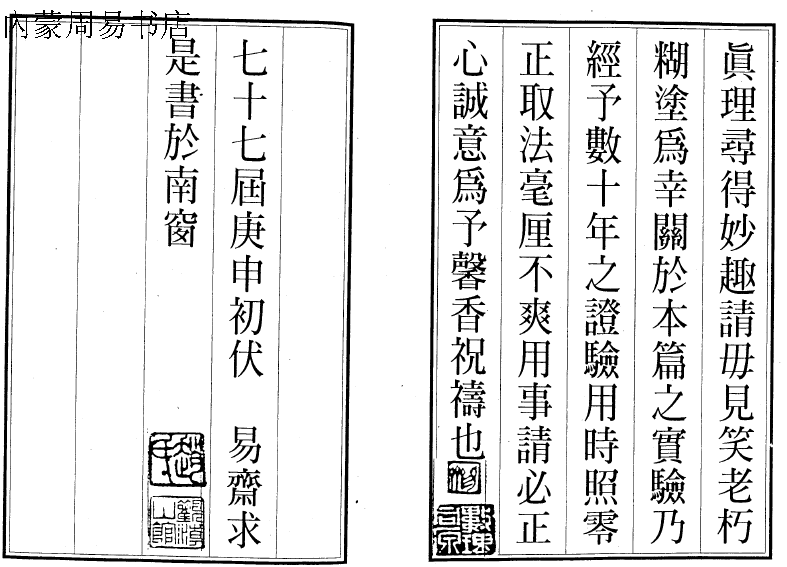 內蒙周易书店
眞理尋得妙趣請毋見笑老朽
糊塗爲幸關於本篇之實驗乃
經予數十年之證驗用時照零
正取法毫厘不爽用事請必正
心誠意爲予馨香祝禱也
七十七屆庚申初伏 易齋求
是書於南窗